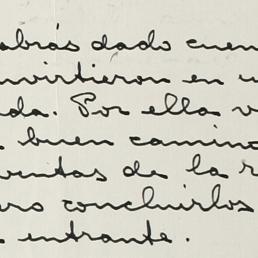 abrás dado cuen
nvirtieron en u
da. Por ella v
buen camino
entas de la r
ro concluirlos
entrante.